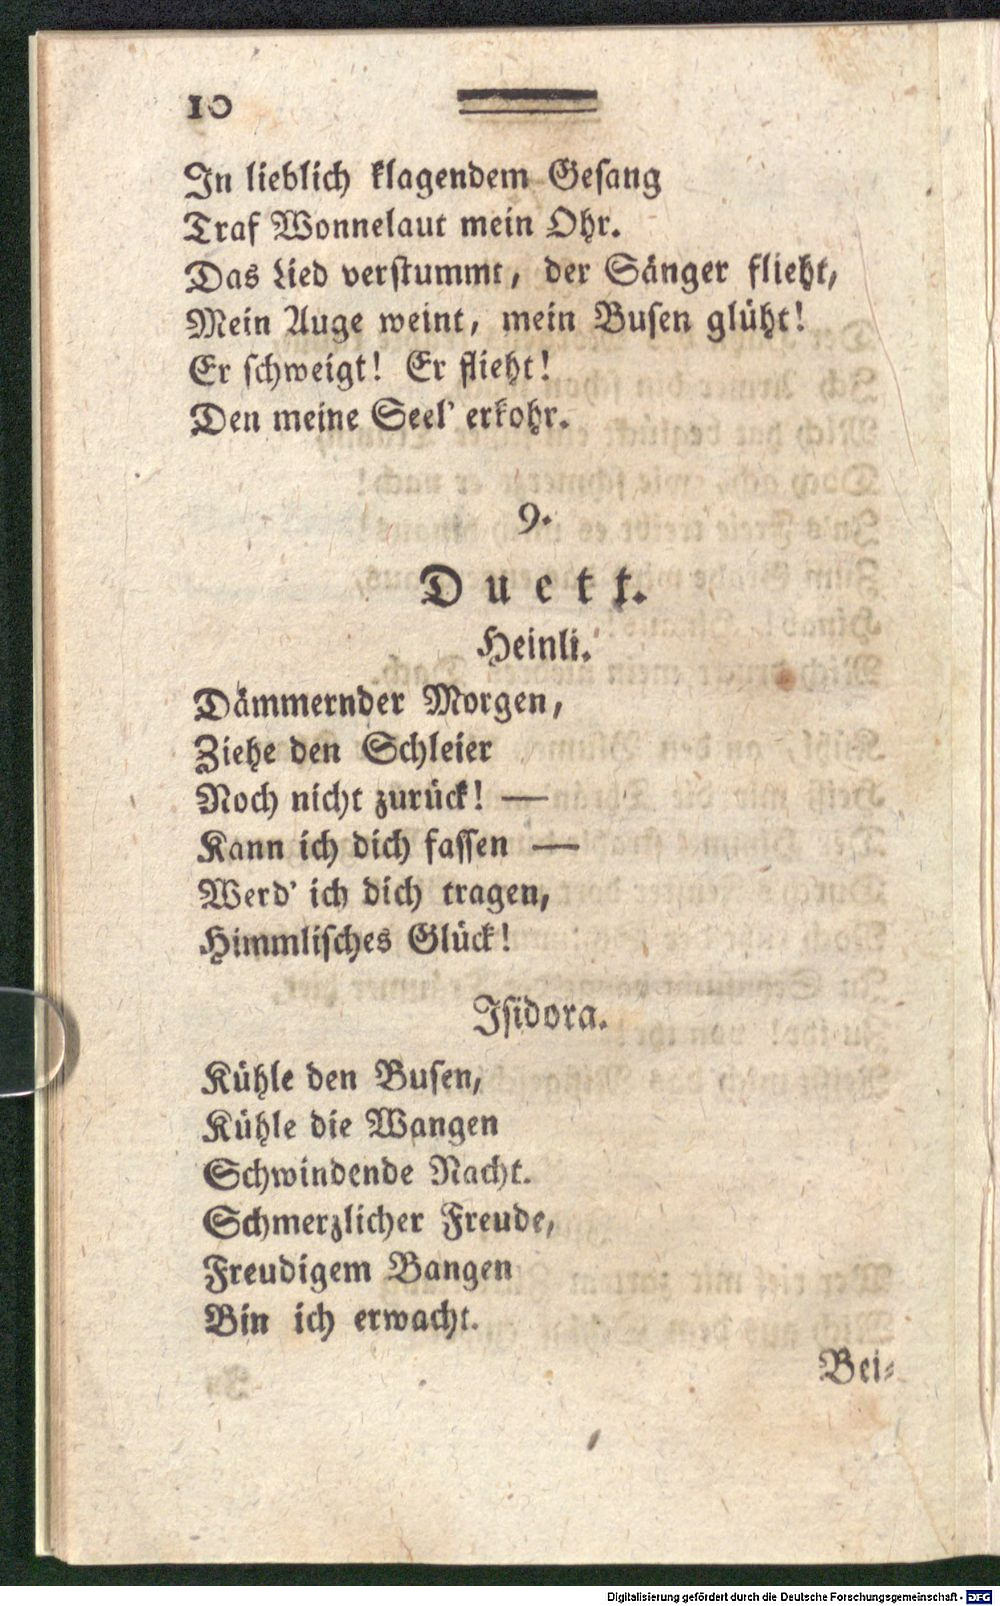 10
In lieblich klagendem Gesang
Traf Wonnelaut mein Ohr.
Das Lied verstummt, der Sänger flieht,
Mein Auge weint, mein Busen glüht!
Er schweigt! Er flieht!
Den meine Seel' erkohr.
9.
Duett.
Heinli.
Dämmernder Morgen,
Ziehe den Schleier
Noch nicht zurück! —
Kann ich dich fassen —
Werd' ich dich tragen,
Himmlisches Glück!
Isidora.
Kühle den Busen,
Kühle die Wangen
Schwindende Nacht.
Schmerzlicher Freude,
Freudigem Bangen
Bin ich erwacht.
Bei-
Digitalisierung gefördert durch die Deutsche Forschungsgemeinschaft - DFG